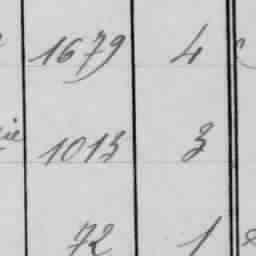 1679 4
1013 3
72 1